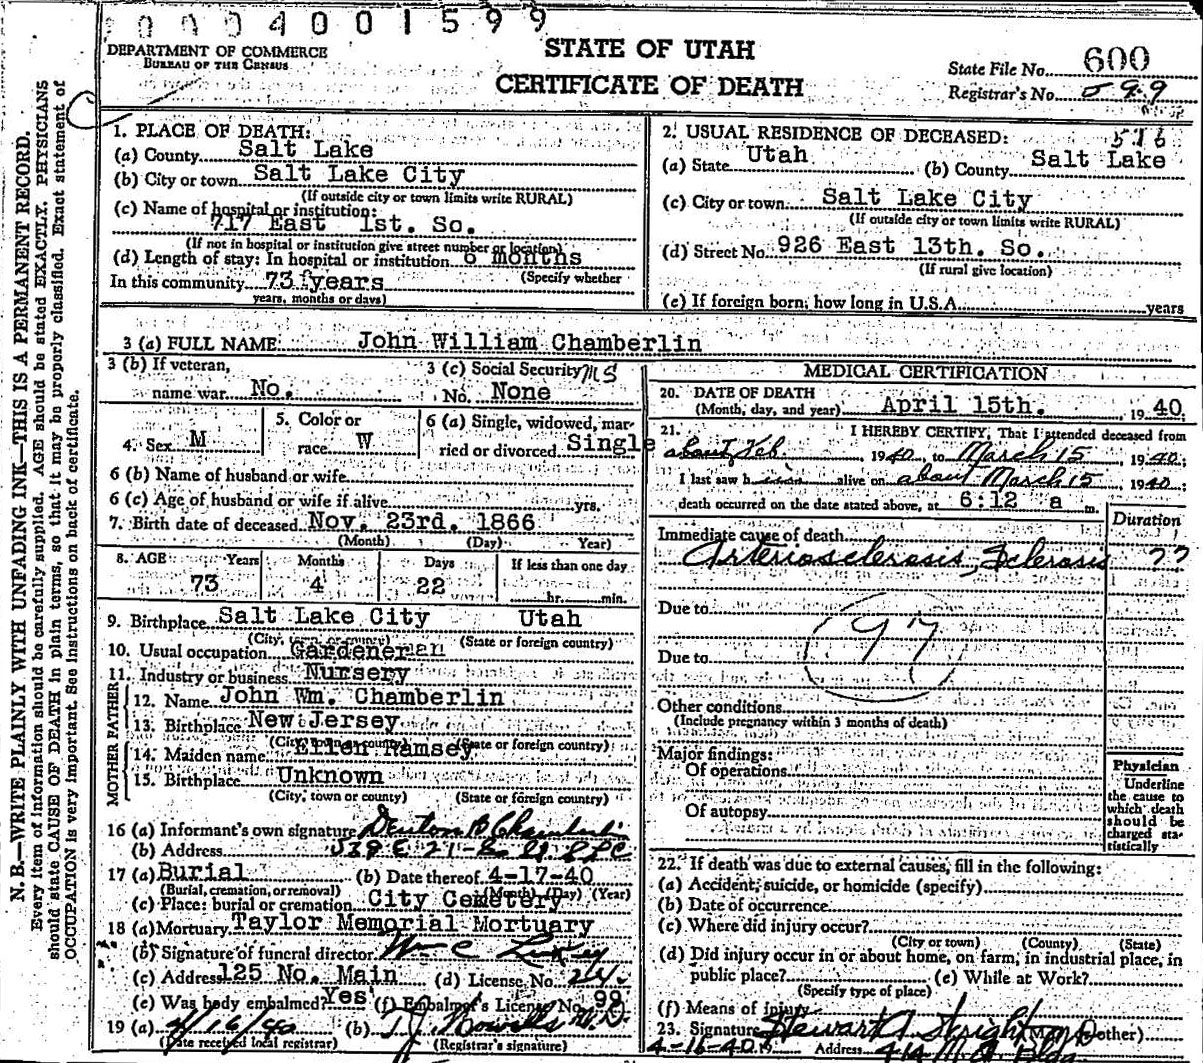 0004001599
DEPARTMENT OF COMMERCE
BUREAU OF THE CENSUS
STATE OF UTAH
CERTIFICATE OF DEATH
State File No. 600
Registrar's No. 599
N. B.—WRITE PLAINLY WITH UNFADING INK—THIS IS A PERMANENT RECORD.
Every item of information should be carefully supplied. AGE should be stated EXACTLY. PHYSICIANS
should state CAUSE OF DEATH in plain terms, so that it may be properly classified. Exact statement of
OCCUPATION is very important. See instructions on back of certificate.
1. PLACE OF DEATH:
(a) County Salt Lake
(b) City or town Salt Lake City
(If outside city or town limits write RURAL)
(c) Name of hospital or institution:
717 East 1st. So.
(If not in hospital or institution give street number or location)
(d) Length of stay: In hospital or institution 6 months
(Specify whether
In this community 73 years
years, months or days)
2. USUAL RESIDENCE OF DECEASED: 576
(a) State Utah (b) County Salt Lake
(c) City or town Salt Lake City
(If outside city or town limits write RURAL)
(d) Street No. 926 East 13th. So.
(If rural give location)
(e) If foreign born, how long in U.S.A. years
3 (a) FULL NAME John William Chamberlin
3 (b) If veteran,
name war No.
3 (c) Social Security MS
No. None
4. Sex M
5. Color or
race W
6 (a) Single, widowed, mar-
ried or divorced Single
6 (b) Name of husband or wife
6 (c) Age of husband or wife if alive yrs.
7. Birth date of deceased Nov. 23rd. 1866
(Month) (Day) Year)
8. AGE Years Months Days If less than one day
73 4 22 hr. min.
9. Birthplace Salt Lake City Utah
(City, town or county) (State or foreign country)
10. Usual occupation Gardenerman
11. Industry or business Nursery
FATHER
12. Name John Wm. Chamberlin
13. Birthplace New Jersey
(City, town or county) (State or foreign country)
MOTHER
14. Maiden name Ellen Ramsey
15. Birthplace Unknown
(City, town or county) (State or foreign country)
16 (a) Informant's own signature Denton B Chamberlin
(b) Address 539 E 21 So St SLC
17 (a) Burial (b) Date thereof 4-17-40
(Burial, cremation, or removal) (Month) (Day) (Year)
(c) Place: burial or cremation City Cemetery
18 (a) Mortuary Taylor Memorial Mortuary
(b) Signature of funeral director Wm C
(c) Address 125 No. Main (d) License No. 24
(e) Was body embalmed? Yes (f) Embalmer's License No. 99
19 (a) 4/16/40 (b) M.D.
(Date received local registrar) (Registrar's signature)
MEDICAL CERTIFICATION
20. DATE OF DEATH
(Month, day, and year) April 15th. 1940
21. I HEREBY CERTIFY, That I attended deceased from
about Feb 1940, to March 15, 1940;
I last saw him alive on about March 15, 1940;
death occurred on the date stated above, at 6:12 a m.
Duration
Immediate cause of death
Arteriosclerosis, Sclerosis ??
Due to
97
Due to
Other conditions
(Include pregnancy within 3 months of death)
Major findings:
Of operations
Of autopsy
Physician
Underline
the cause to
which death
should be
charged sta-
tistically
22. If death was due to external causes, fill in the following:
(a) Accident, suicide, or homicide (specify)
(b) Date of occurrence
(c) Where did injury occur?
(City or town) (County) (State)
(d) Did injury occur in or about home, on farm, in industrial place, in
public place? (e) While at Work?
(Specify type of place)
(f) Means of injury
23. Signature Stewart A. Wright (M.D. or other)
4-16-40 Address 414 M. A. Bldg